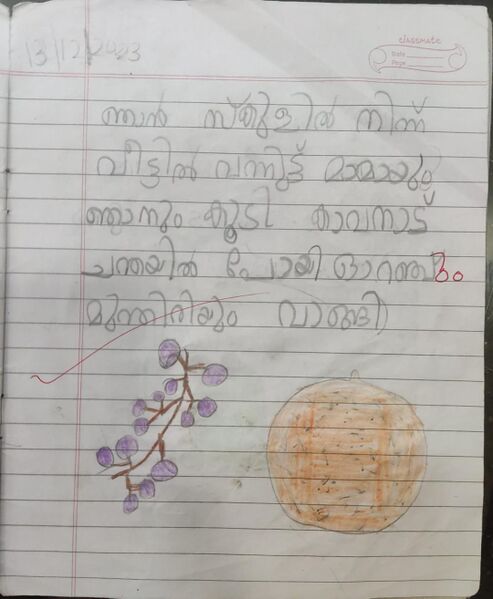 13/12/2023
classmate
Date
Page
ഞാൻ സ്കൂളിൽ നിന്ന്
വീട്ടിൽ വന്നിട്ട് മാമായും
ഞാനും കൂടി കാവനാട്
ചന്തയിൽ പോയി ഓറഞ്ചും
മുന്തിരിയും വാങ്ങി